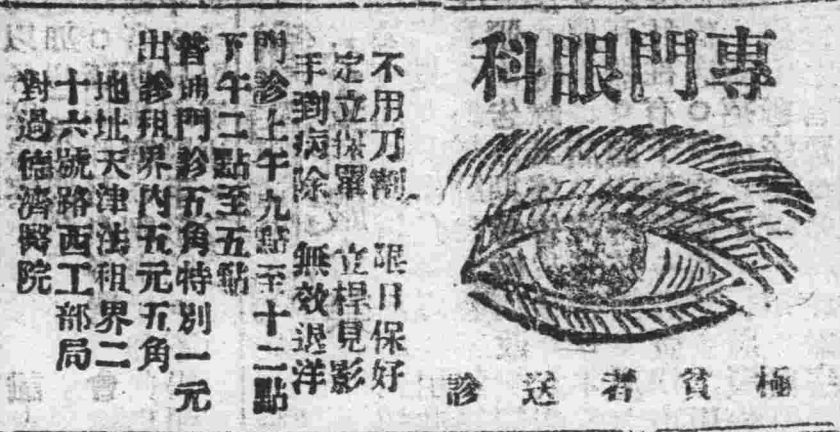 專門眼科
極貧者送診
不用刀割 限日保好
定立保單 立桿見影
手到病除 無效退洋
門診上午九點至十二點
下午二點至五點
普通門診五角特別一元
出診租界內五元五角
地址天津法租界二
十六號路西工部局
對過德濟醫院